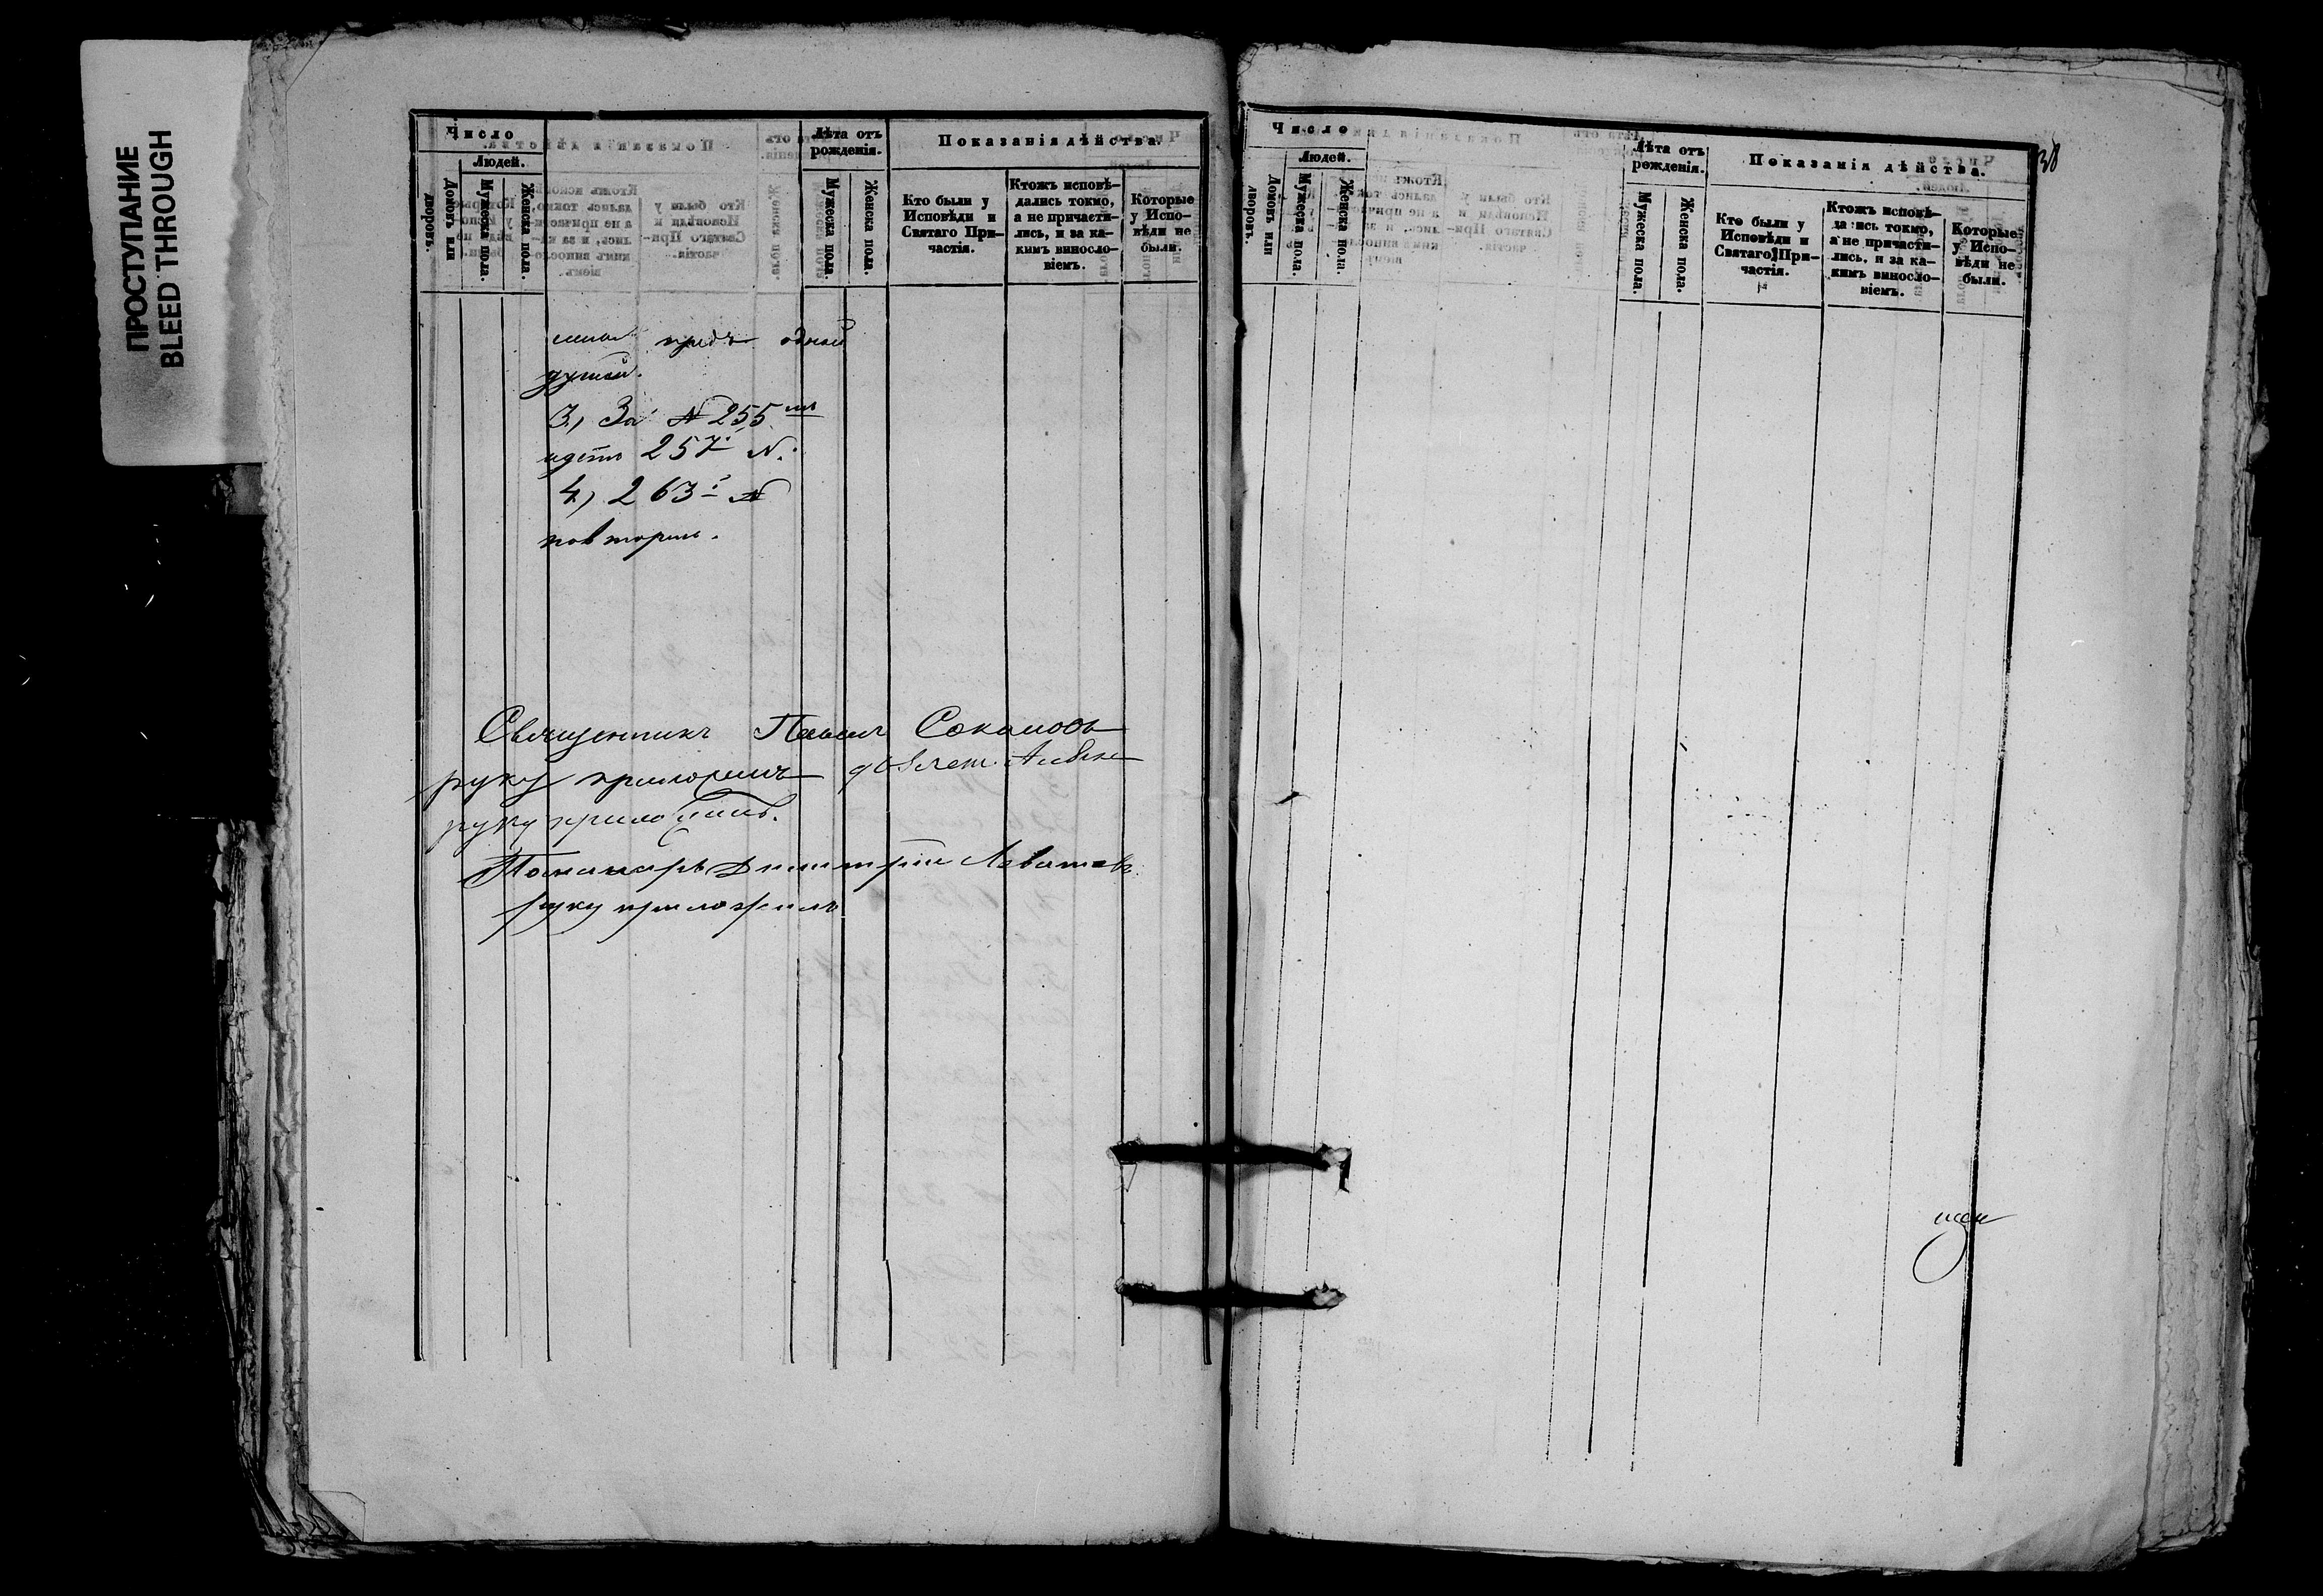 ПРОСТУПАНИЕ
BLEED THROUGH
Число
Людей.
Домовъ или дворовъ.
Мужеска пола.
Женска пола.
Лѣта отъ
рожденія.
Мужеска пола.
Женска пола.
Показанія дѣйства.
Кто были у
Исповѣди и
Святаго При-
частія.
Ктожъ исповѣ-
дались токмо,
а не причасти-
лись, и за ка-
кимъ винословіемъ.
Которые
у Испо-
вѣди не
были.
одной
душой.
3, За № 255
идетъ 257 №.
4, 263 №
повторил.
Священникъ Павелъ Соколовъ
руку приложилъ
руку приложилъ.
Пономарь Димитрій
руку приложилъ
Число
Людей.
Домовъ или дворовъ.
Мужеска пола.
Женска пола.
Лѣта отъ
рожденія.
Мужеска пола.
Женска пола.
Показанія дѣйства.
Кто были у
Исповѣди и
Святаго При-
частія.
Ктожъ исповѣ-
да ись токмо,
а не причасти-
лись, и за ка-
кимъ винословіемъ.
Которые
у Испо-
вѣди не
были.